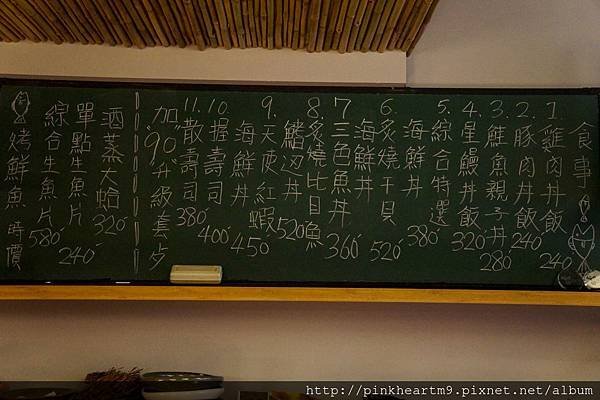 食事
1.雞肉丼飯 240
2.豚肉丼飯 240
3.鮭魚親子丼 280
4.星鰻丼飯 320
5.綜合特選
海鮮丼 380
6.炙燒干貝
海鮮丼 520
7.三色魚丼 360
8.炙燒比目魚
鰭边丼 520
9.天使紅蝦
海鮮丼 450
10.握壽司 400
11.散壽司 380
加"90"升級套夕
酒蒸大蛤 320
單點生魚片 240
綜合生魚片 580
烤鮮魚 時價
http://pinkheartm9.pixnet.net/album